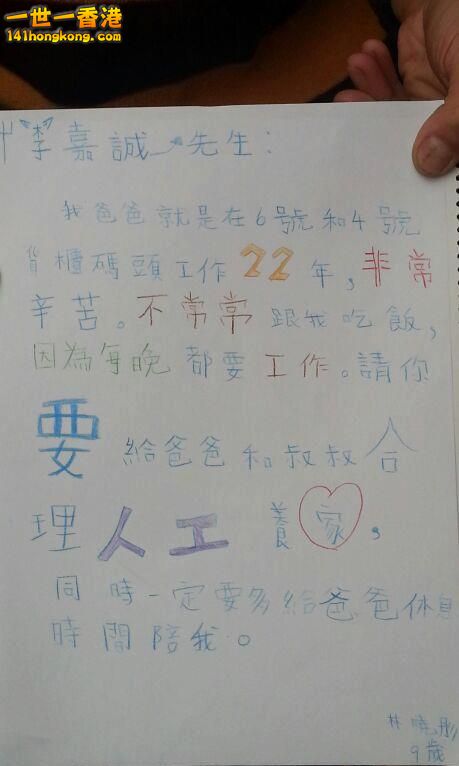 一世一香港
141hongkong.com
李嘉誠先生:
我爸爸就是在6號和4號
貨櫃碼頭工作22年,非常
辛苦。不常常跟我吃飯,
因為每晚都要工作。請你
要給爸爸和叔叔合
理人工養家,
同時一定要多給爸爸休息
時間陪我。
林曉彤
9歲